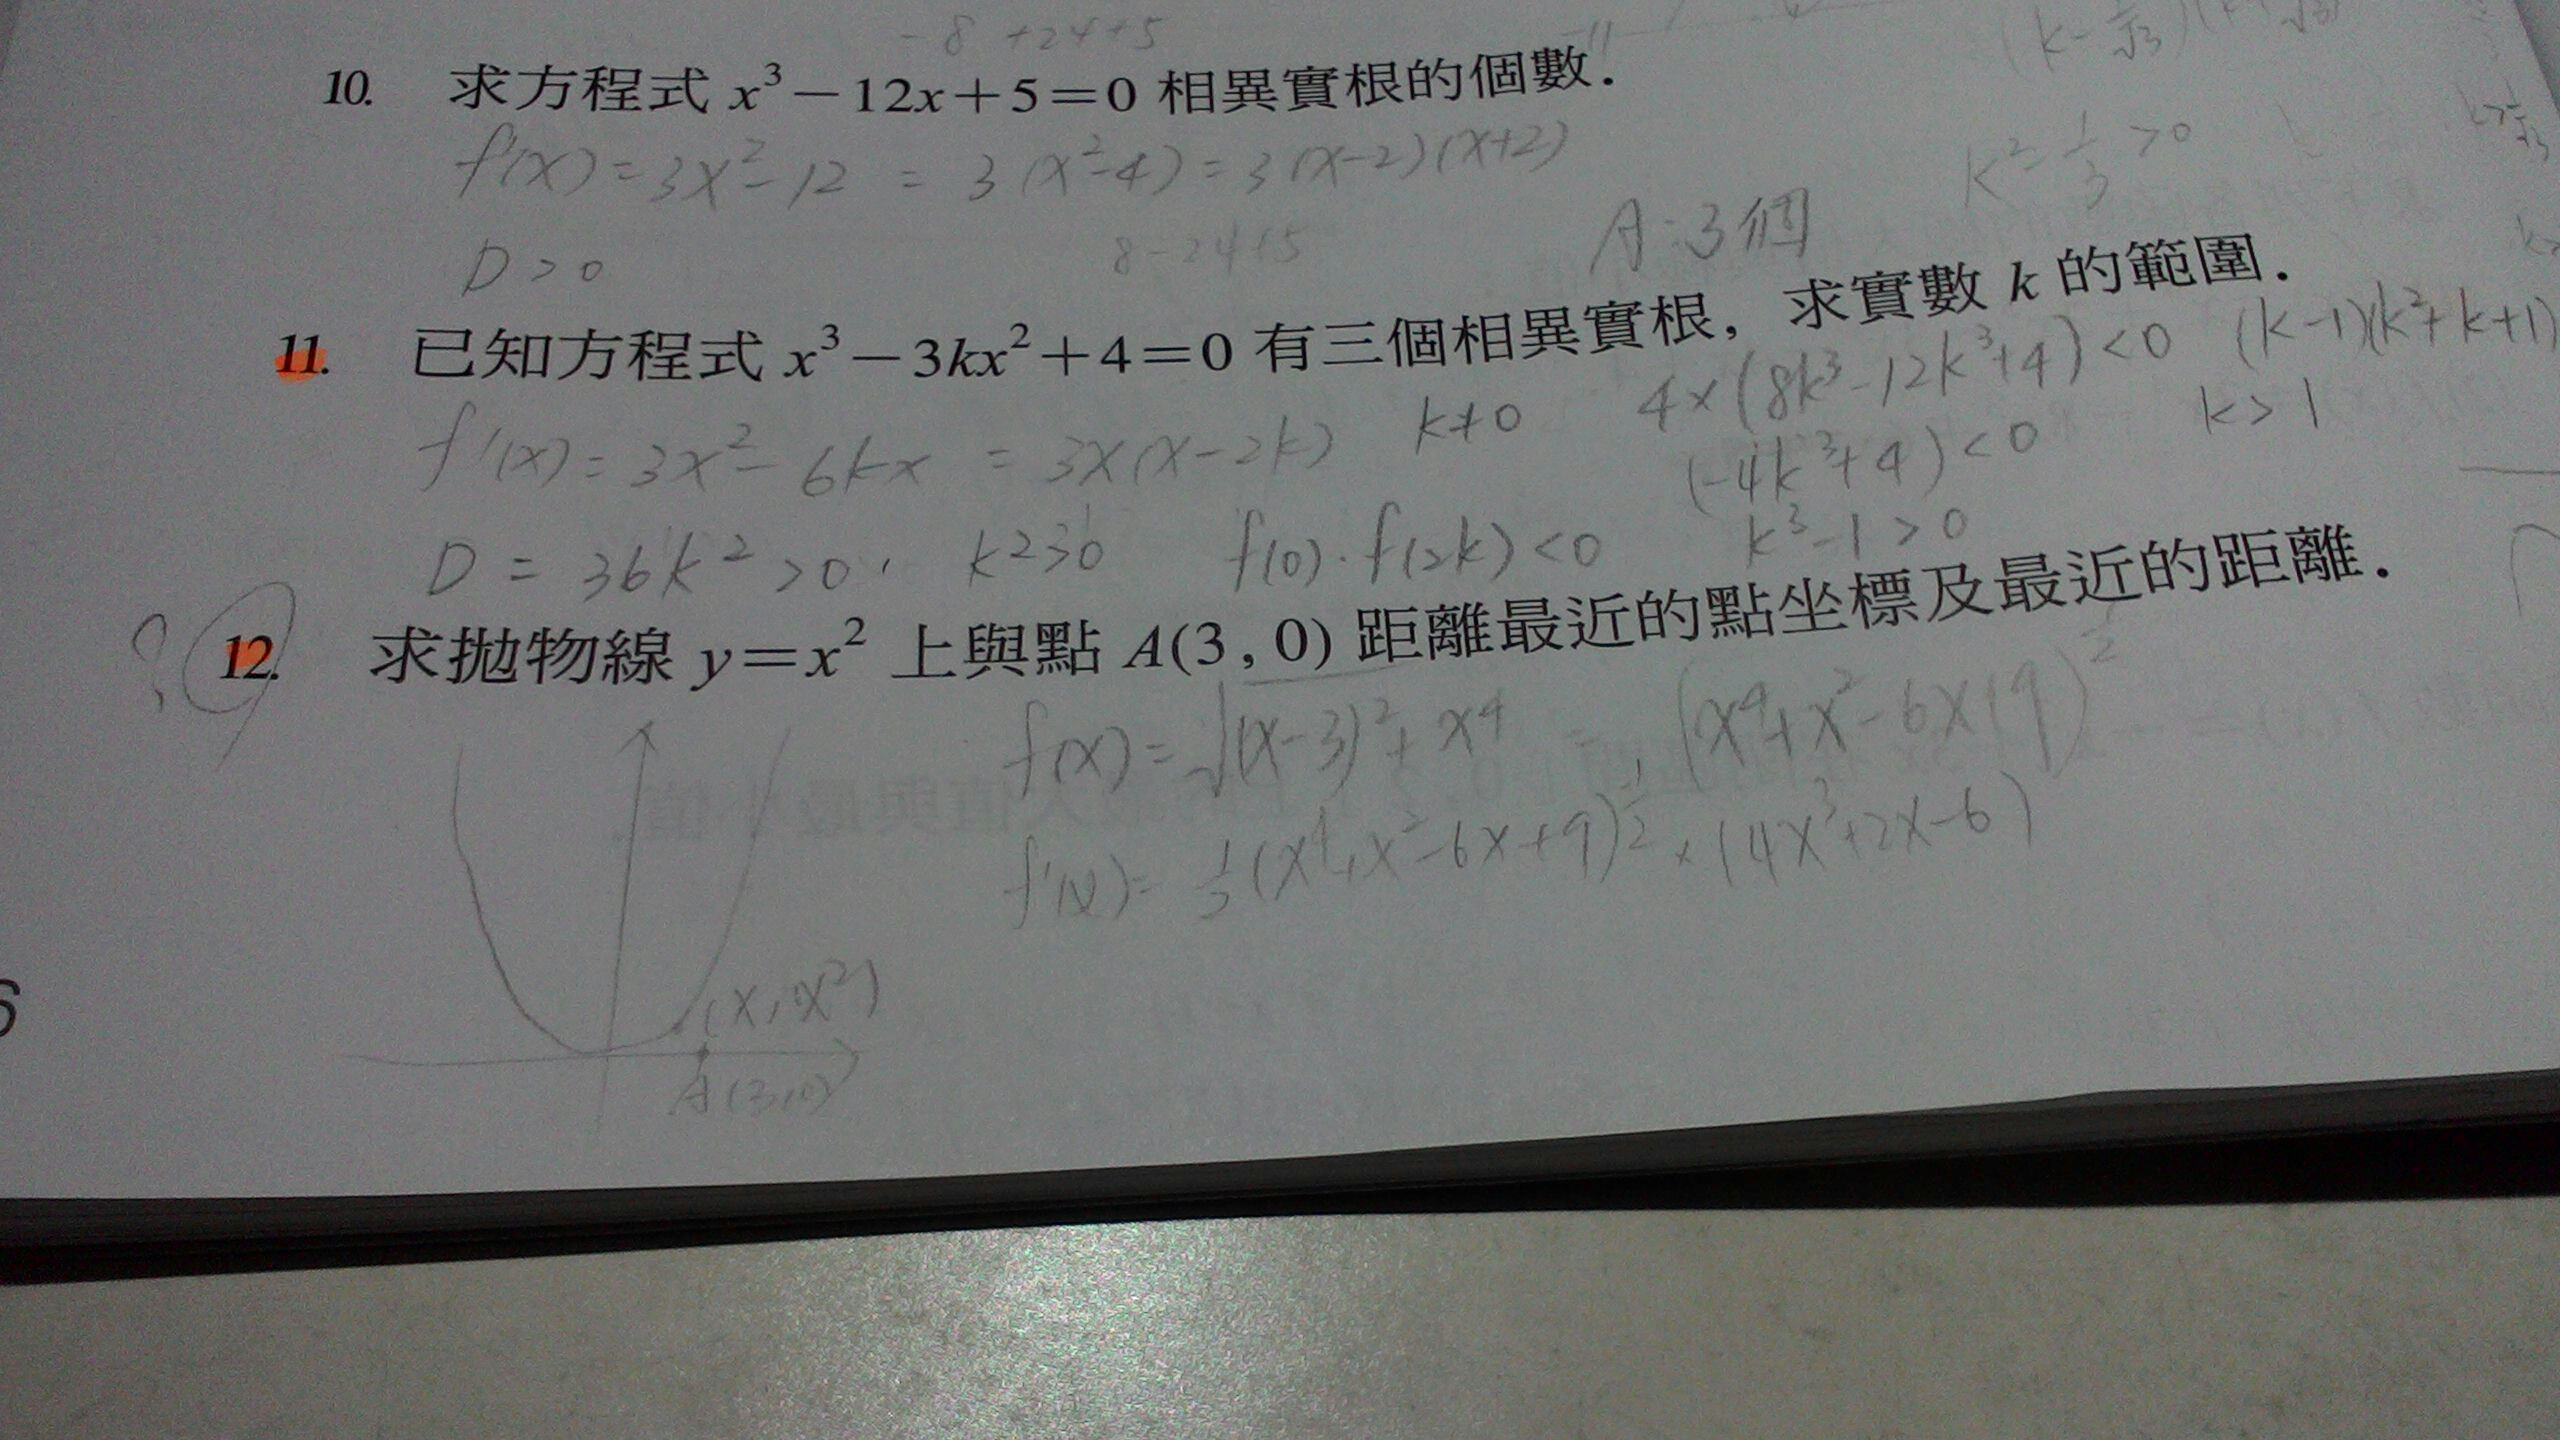 -8 +24+5
10. 求方程式 x³-12x+5=0 相異實根的個數.
f'(x)=3x²-12 = 3(x²-4)=3(x-2)(x+2)
k²-1/3>0
D>0
8-24+5
A:3個
11. 已知方程式 x³-3kx²+4=0 有三個相異實根, 求實數 k 的範圍.
f'(x)=3x²-6kx = 3x(x-2k) k≠0
4×(8k³-12k³+4)<0
(k-1)(k²+k+1)
(-4k³+4)<0
k>1
D = 36k²>0, f(0)·f(2k)<0
k³-1>0
12. 求拋物線 y=x² 上與點 A(3,0) 距離最近的點坐標及最近的距離.
f(x)=√(x-3)²+x⁴ = (x⁴+x²-6x+9)^½
(x⁴+x²-6x+9) × (4x³+2x-6)
(x,x²)
A(3,0)